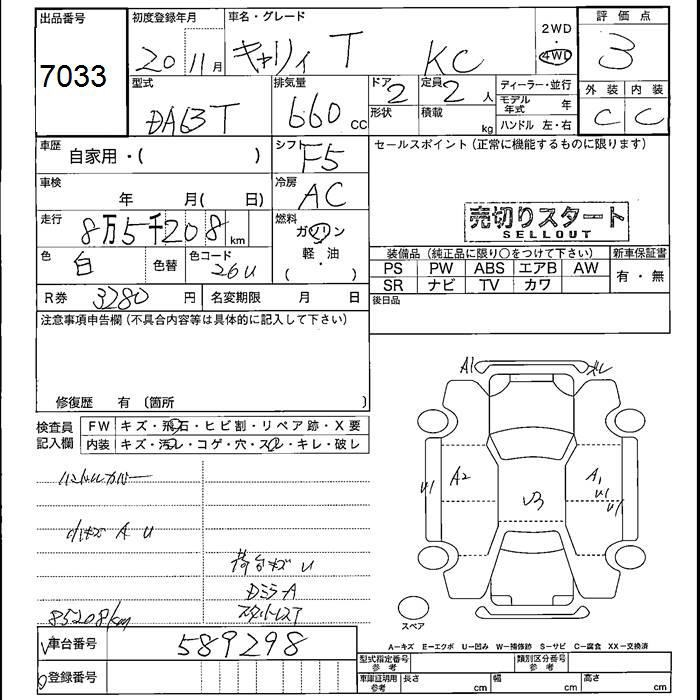 出品番号 初度登録年月 車名・グレード 2WD・4WD 評価点
7033 20 11月 キャリイ T KC 3
型式 排気量 ドア 定員 ディーラー・並行 外装 内装
DA63T 660cc 2 2人 モデル年式 年 C C
形状 積載 kg ハンドル 左・右
車歴 自家用・( ) シフト F5 セールスポイント(正常に機能するものに限ります)
車検 年 月( 日) 冷房 AC
走行 8万5千208km 燃料 ガソリン・軽油 ( )
売切りスタート
SELLOUT
色 白 色替 色コード 26U
装備品(純正品に限り○をつけて下さい) 新車保証書
PS PW ABS エアB AW 有・無
SR ナビ TV カワ
R券 3280円 名変期限 月 日 後日品
注意事項申告欄(不具合内容等は具体的に記入して下さい)
修復歴 有 〔箇所 〕
検査員記入欄 FW キズ・飛石・ヒビ割・リペア跡・X要
内装 キズ・汚レ・コゲ・穴・スレ・キレ・破レ
A1 ズレ
ハンドルカバー
U1 A2 U3 A1 U1 U1
小キズ A U
荷台キズ U
DミラーA
スタットレスT
85208km
スペア
車台番号 589298
A=キズ E=エクボ U=凹み W=補修跡 S=サビ C=腐食 XX=交換済
登録番号
型式指定番号 参考 類別区分番号 参考
車庫証明用 参考 長さ cm 幅 cm 高さ cm